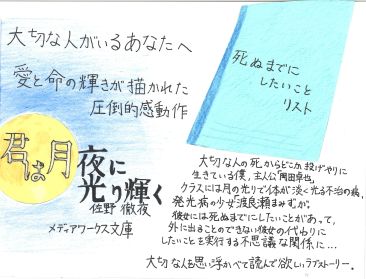 大切な人がいるあなたへ
愛と命の輝きが描かれた
圧倒的感動作
死ぬまでに
したいこと
リスト
君は月夜に
光り輝く
佐野 徹夜
メディアワークス文庫
大切な人の死からどこか投げやりに
生きている僕、主人公「岡田卓也」。
クラスには月の光りで体が淡く光る不治の病、
発光病の少女渡良瀬まみずが。
彼女には死ぬまでにしたいことがあって、
外に出ることのできない彼女の代わりに
したいことを実行する不思議な関係に…
大切な人を思い浮かべて読んで欲しいラブストーリー。